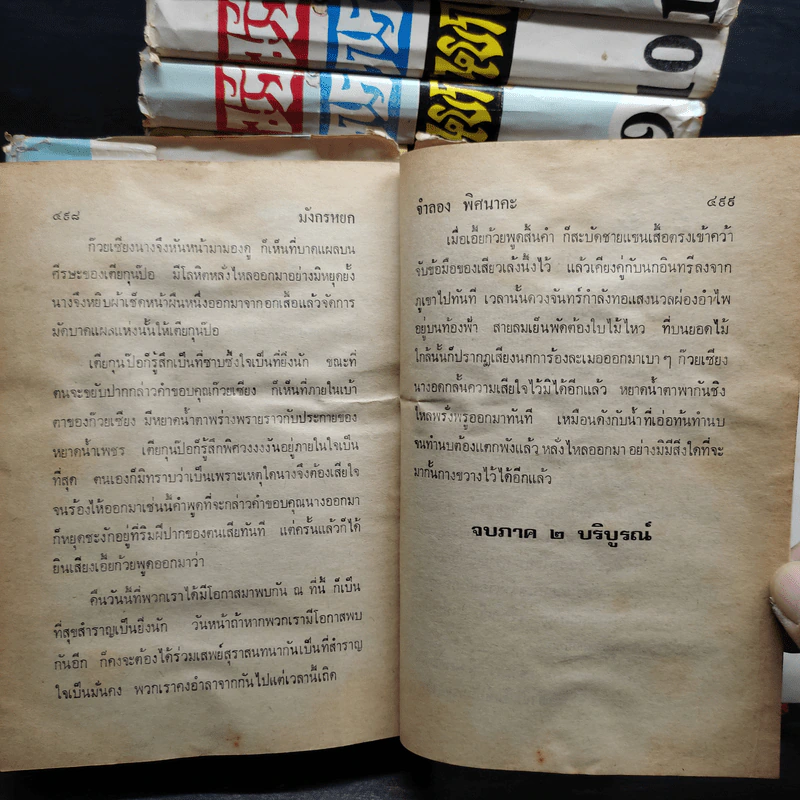 10
9
๔๙๘
มังกรหยก
ก๊วยเซียงนางจึงหันหน้ามามองดู ก็เห็นที่บาดแผลบน
ศีรษะของเตียกุนป้อ มีโลหิตหลั่งไหลออกมาอย่างมิหยุดยั้ง
นางจึงหยิบผ้าเช็ดหน้าผืนหนึ่งออกมาจากอกเสื้อแล้วจัดการ
มัดบาดแผลแห่งนั้นให้เตียกุนป้อ
เตียกุนป้อก็รู้สึกเป็นที่ซาบซึ้งใจเป็นที่ยิ่งนัก ขณะที่
ตนจะขยับปากกล่าวคำขอบคุณก๊วยเซียง ก็เห็นที่ภายในเบ้า
ตาของก๊วยเซียง มีหยาดน้ำตาพร่างพรายราวกับประกายของ
หยาดน้ำเพชร เตียกุนป้อก็รู้สึกพิศวงงงงันอยู่ภายในใจเป็น
ที่สุด ตนเองก็มิทราบว่าเป็นเพราะเหตุใดนางจึงต้องเสียใจ
จนร้องไห้ออกมาเช่นนี้คำพูดที่จะกล่าวคำขอบคุณนางออกมา
ก็หยุดชะงักอยู่ที่ริมฝีปากของตนเสียทันที แต่ครั้นแล้วก็ได้
ยินเสียงเอี้ยก้วยพูดออกมาว่า
คืนวันนี้ที่พวกเราได้มีโอกาสมาพบกัน ณ ที่นี้ ก็เป็น
ที่สุขสำราญเป็นยิ่งนัก วันหน้าถ้าหากพวกเรามีโอกาสพบ
กันอีก ก็คงจะต้องได้ร่วมเสพย์สุราสนทนากันเป็นที่สำราญ
ใจเป็นมั่นคง พวกเราคงอำลาจากกันไปแต่เวลานี้เถิด
จำลอง พิศนาคะ
๔๙๙
เมื่อเอี้ยก้วยพูดสิ้นคำ ก็สะบัดชายแขนเสื้อตรงเข้าคว้า
จับข้อมือของเสียวเล้งนึ้งไว้ แล้วเคียงคู่กับนกอินทรีลงจาก
ภูเขาไปทันที เวลานั้นดวงจันทร์กำลังทอแสงนวลผ่องอำไพ
อยู่บนท้องฟ้า สายลมเย็นพัดต้องใบไม้ไหว ที่บนยอดไม้
ใกล้นั้นก็ปรากฏเสียงนกการ้องละเมอออกมาเบา ๆ ก๊วยเซียง
นางอดกลั้นความเสียใจไว้มิได้อีกแล้ว หยาดน้ำตาพากันชิง
ไหลพรั่งพรูออกมาทันที เหมือนดังกับน้ำที่เอ่อท้นทำนบ
จนทำนบต้องแตกพังแล้ว หลั่งไหลออกมา อย่างมิมีสิ่งใดที่จะ
มากั้นกางขวางไว้ได้อีกแล้ว
จบภาค ๒ บริบูรณ์